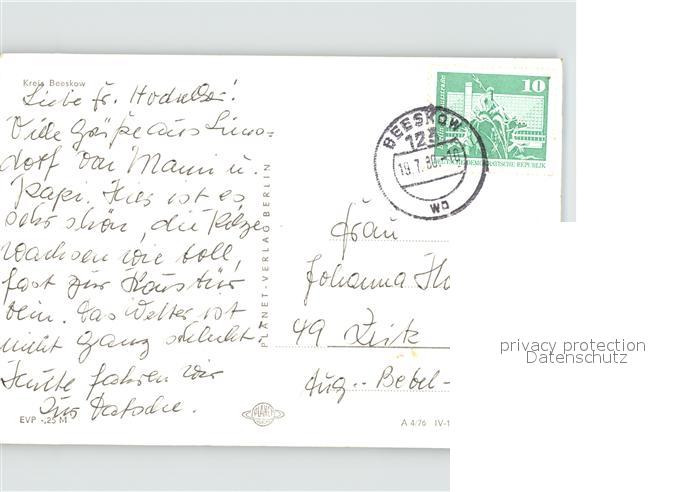 Kreis Beeskow
Liebe Fr.
Viele Grüße aus Lims-
dorf von Mami u.
Papi. Hier ist es
sehr schön, die Pilze
wachsen wie toll,
fast zur Haustür
rein. Das Wetter ist
nicht ganz schlecht.
Heute fahren wir
zur Datsche.
EVP -,25 M
PLANET-VERLAG BERLIN
PLANET
10
DEUTSCHE DEMOKRATISCHE REPUBLIK
BEESKOW
123
wa
Frau
Johanna Ho
49 Zeitz
Aug.-Bebel-
A 4/76 IV-1
privacy protection
Datenschutz